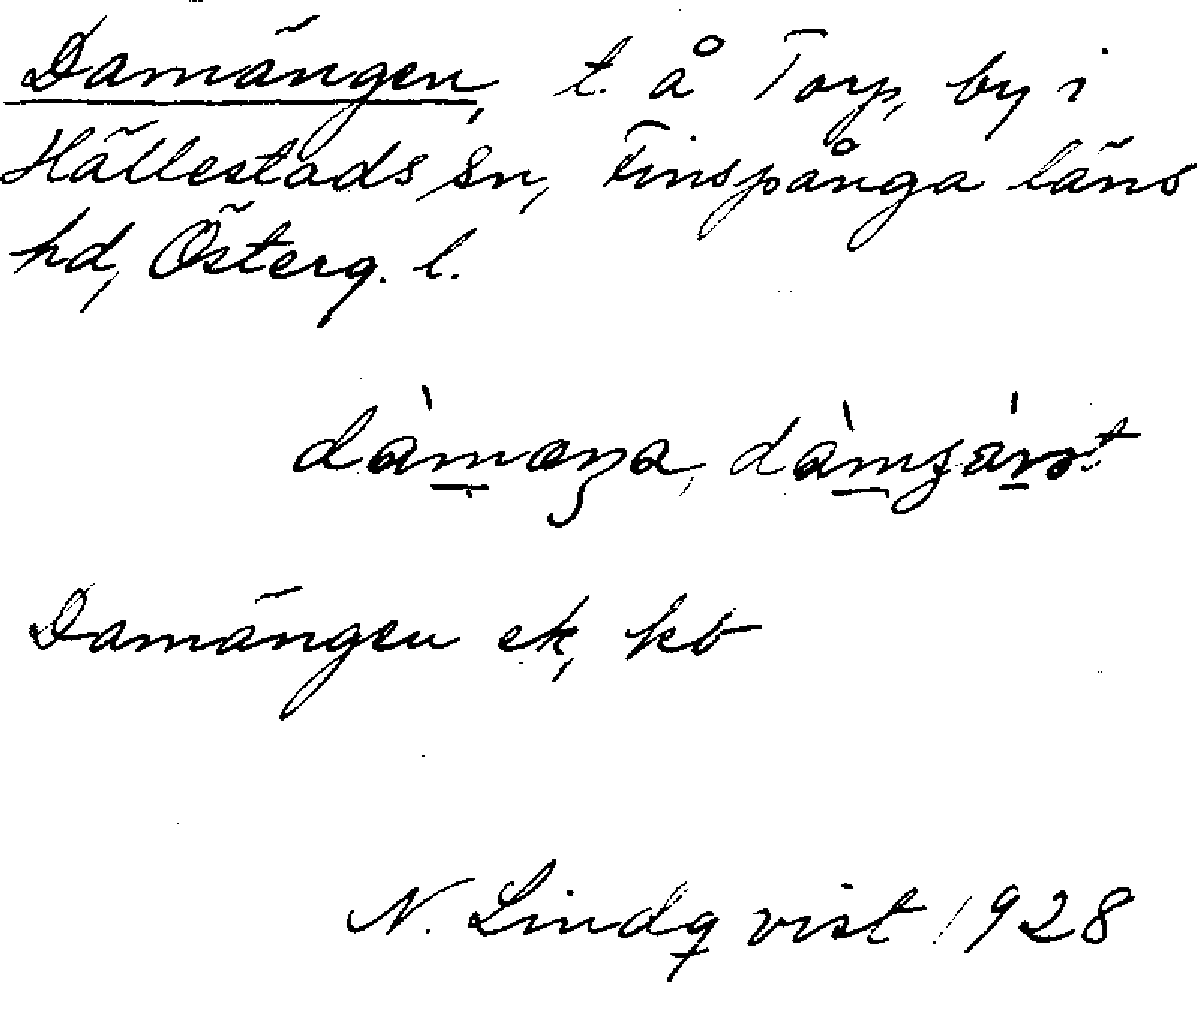 Damängen, t. å Torp, by i
Hällestads sn, Finspånga läns
hd, Österg. l.
Damängen ek, kb
N. Lindqvist 1928